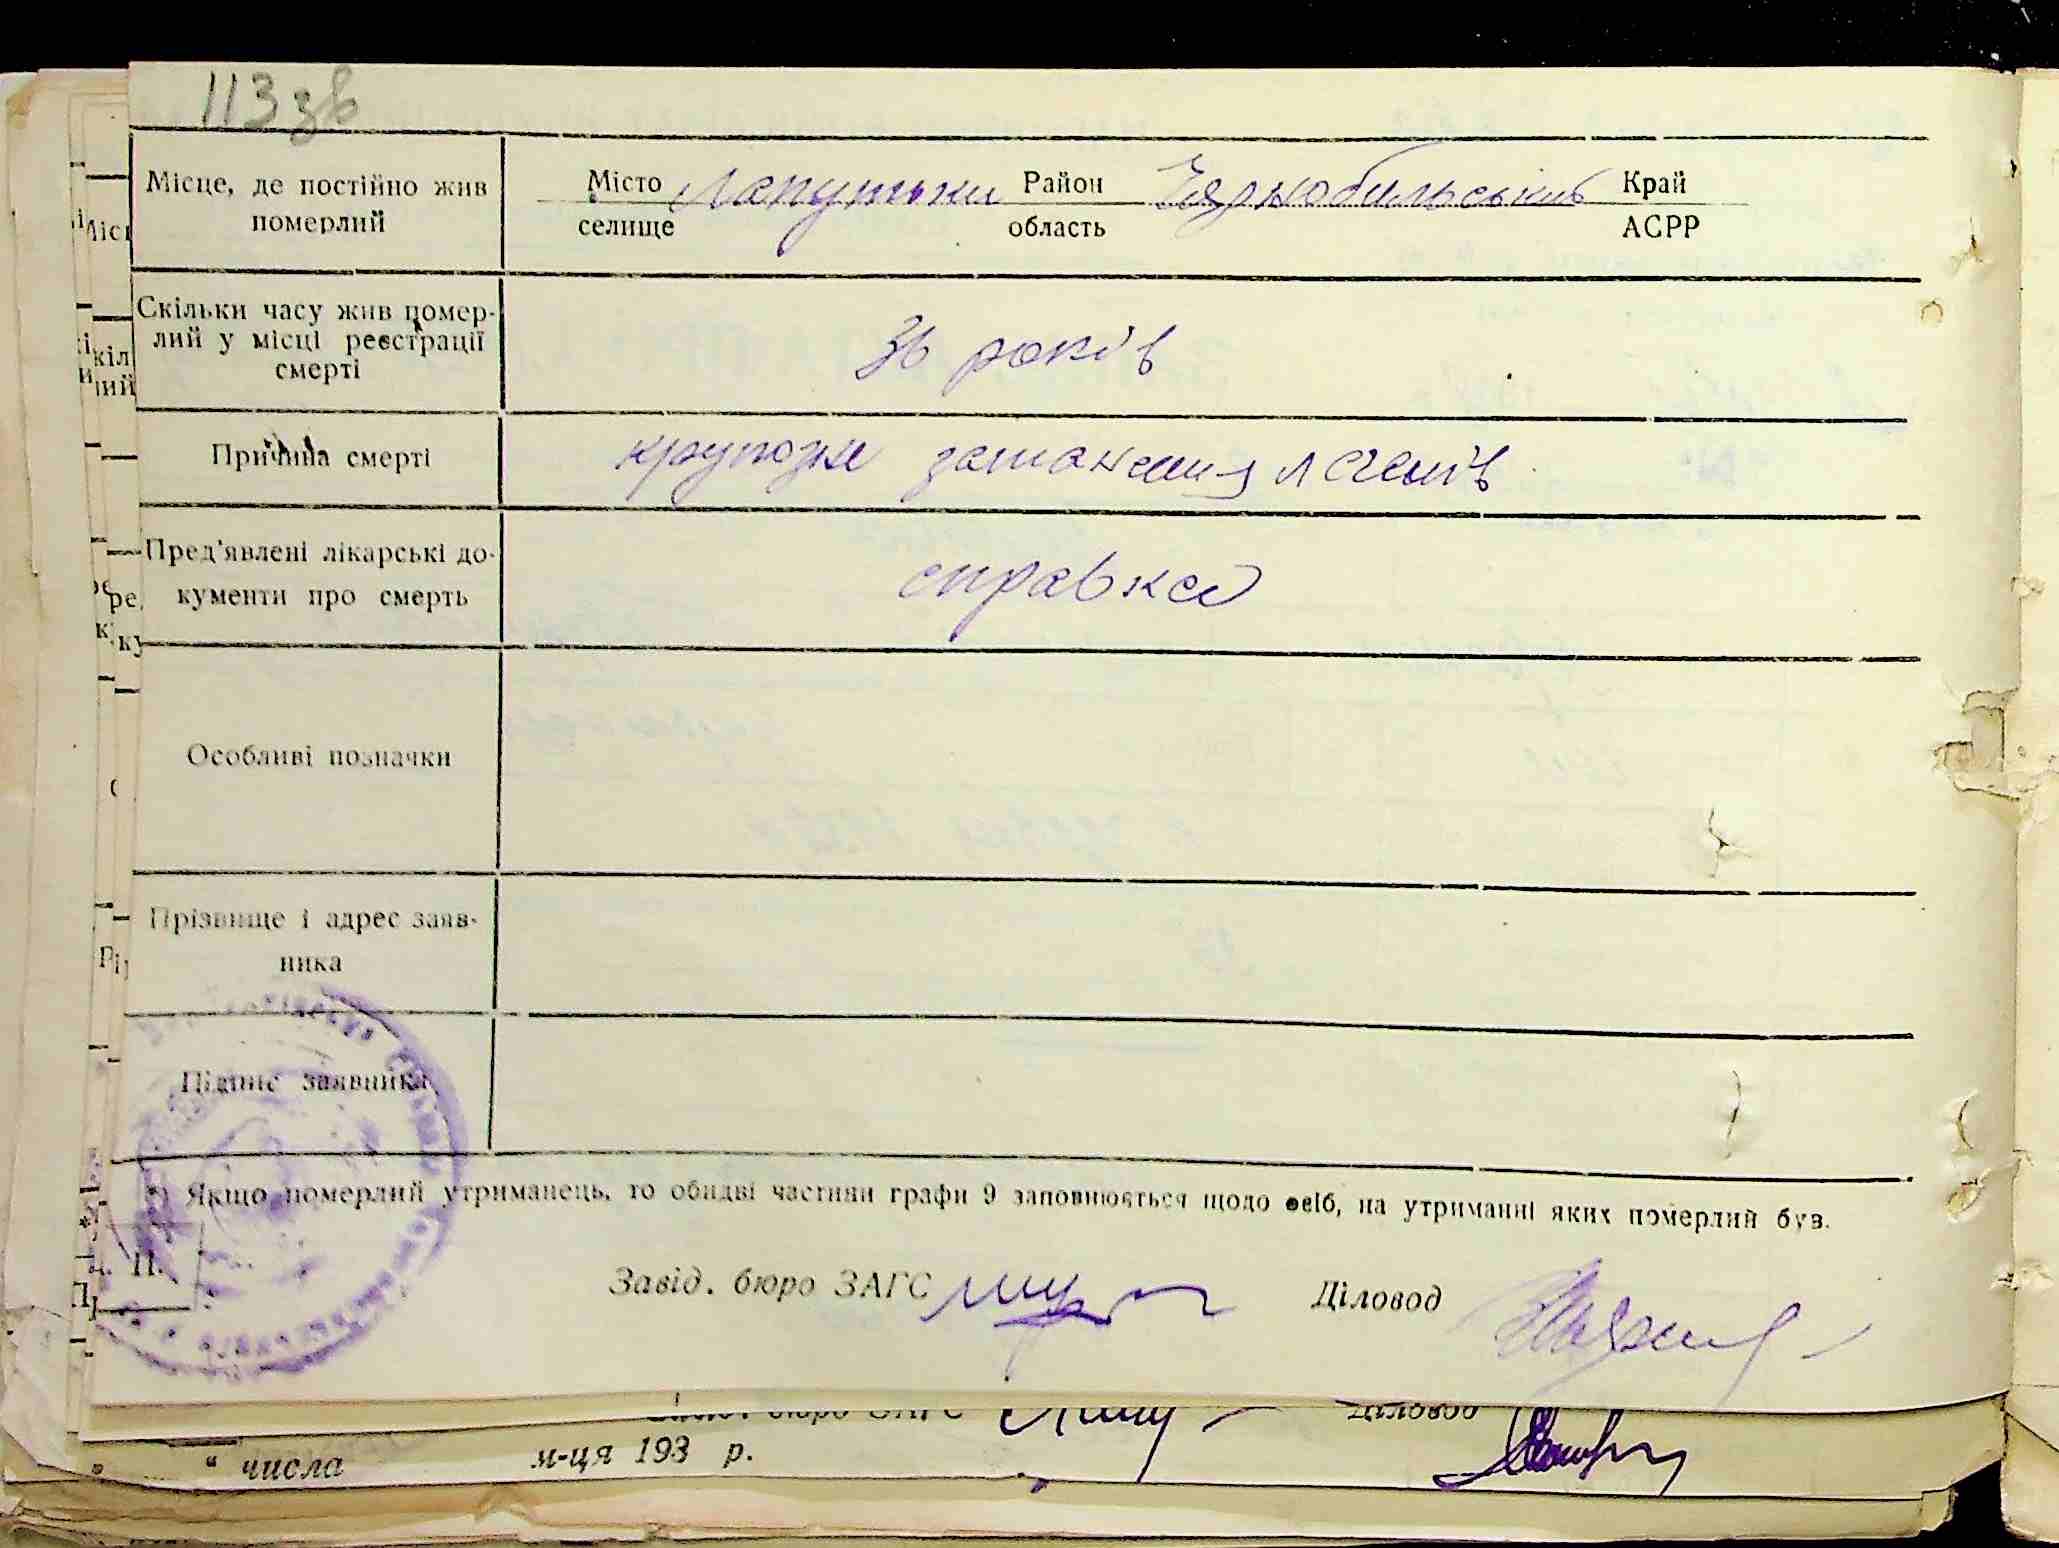 113 зв
Місце, де постійно жив
померлий
Місто
селище
Район
область
Чернобильський
Край
АСРР
Скільки часу жив помер-
лий у місці реєстрації
смерті
36 років
Причина смерті
легенів
Пред'явлені лікарські до-
кументи про смерть
справка
Особливі позначки
Прізвище і адрес заяв-
ника
Підпис заявника
*) Якщо померлий утриманець, то обидві частини графи 9 заповнюється щодо осіб, на утриманні яких померлий був.
Завід. бюро ЗАГС
Діловод
бюро ЗАГС
Діловод
“ числа м-ця 193 р.